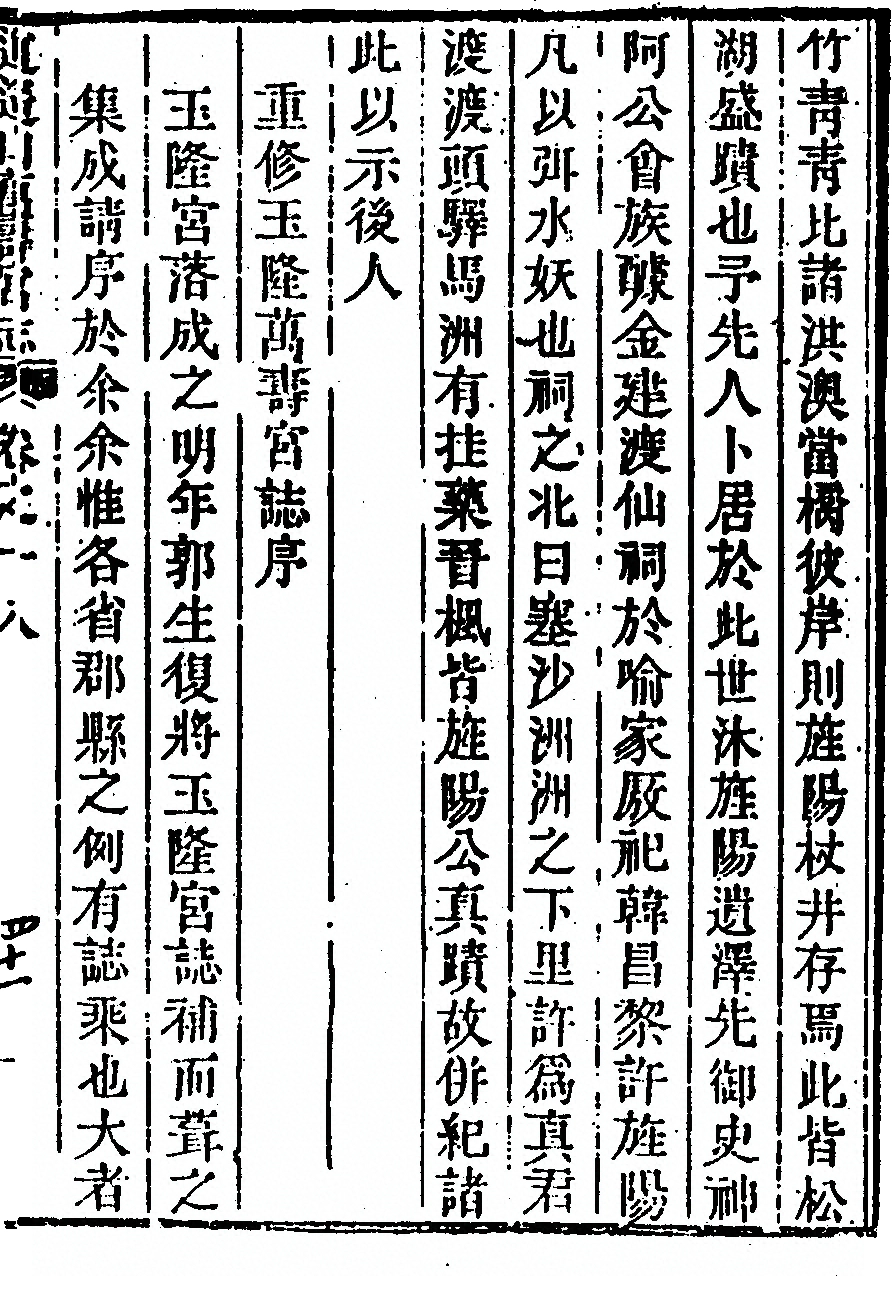 竹靑靑比諸淇澳當橋彼岸則旌陽杖井存焉此皆松
湖盛蹟也予先人卜居於此世沐旌陽遺澤先御史神
阿公會族醵金建渡仙祠於喻家厫祀韓昌黎許旌陽
凡以弭水妖也祠之北曰塞沙洲洲之下里許爲真君
渡渡頭驛馬洲有挂藥吾楓皆旌陽公真蹟故併紀諸
此以示後人
重修玉隆萬壽宮誌序
玉隆宮落成之明年郭生復將玉隆宮誌補而葺之
集成請序於余余惟各省郡縣之例有誌乘也大者
卷之十八
四十一